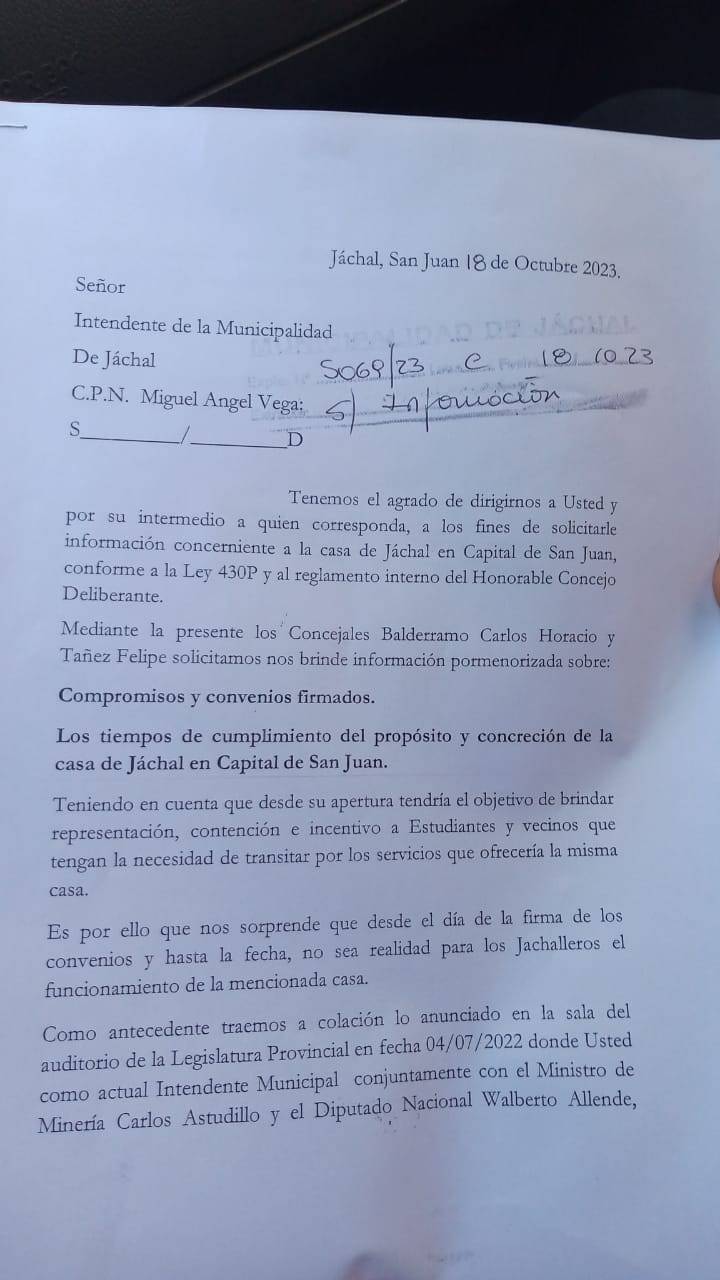 Jáchal, San Juan 18 de Octubre 2023.
Señor
Intendente de la Municipalidad
MUNICIPALIDAD DE JÁCHAL
De Jáchal
5069/23 C 18 10 23
C.P.N. Miguel Angel Vega:
S/ Información
S__________/__________D
Tenemos el agrado de dirigirnos a Usted y
por su intermedio a quien corresponda, a los fines de solicitarle
información concerniente a la casa de Jáchal en Capital de San Juan,
conforme a la Ley 430P y al reglamento interno del Honorable Concejo
Deliberante.
Mediante la presente los Concejales Balderramo Carlos Horacio y
Tañez Felipe solicitamos nos brinde información pormenorizada sobre:
Compromisos y convenios firmados.
Los tiempos de cumplimiento del propósito y concreción de la
casa de Jáchal en Capital de San Juan.
Teniendo en cuenta que desde su apertura tendría el objetivo de brindar
representación, contención e incentivo a Estudiantes y vecinos que
tengan la necesidad de transitar por los servicios que ofrecería la misma
casa.
Es por ello que nos sorprende que desde el día de la firma de los
convenios y hasta la fecha, no sea realidad para los Jachalleros el
funcionamiento de la mencionada casa.
Como antecedente traemos a colación lo anunciado en la sala del
auditorio de la Legislatura Provincial en fecha 04/07/2022 donde Usted
como actual Intendente Municipal conjuntamente con el Ministro de
Minería Carlos Astudillo y el Diputado Nacional Walberto Allende,